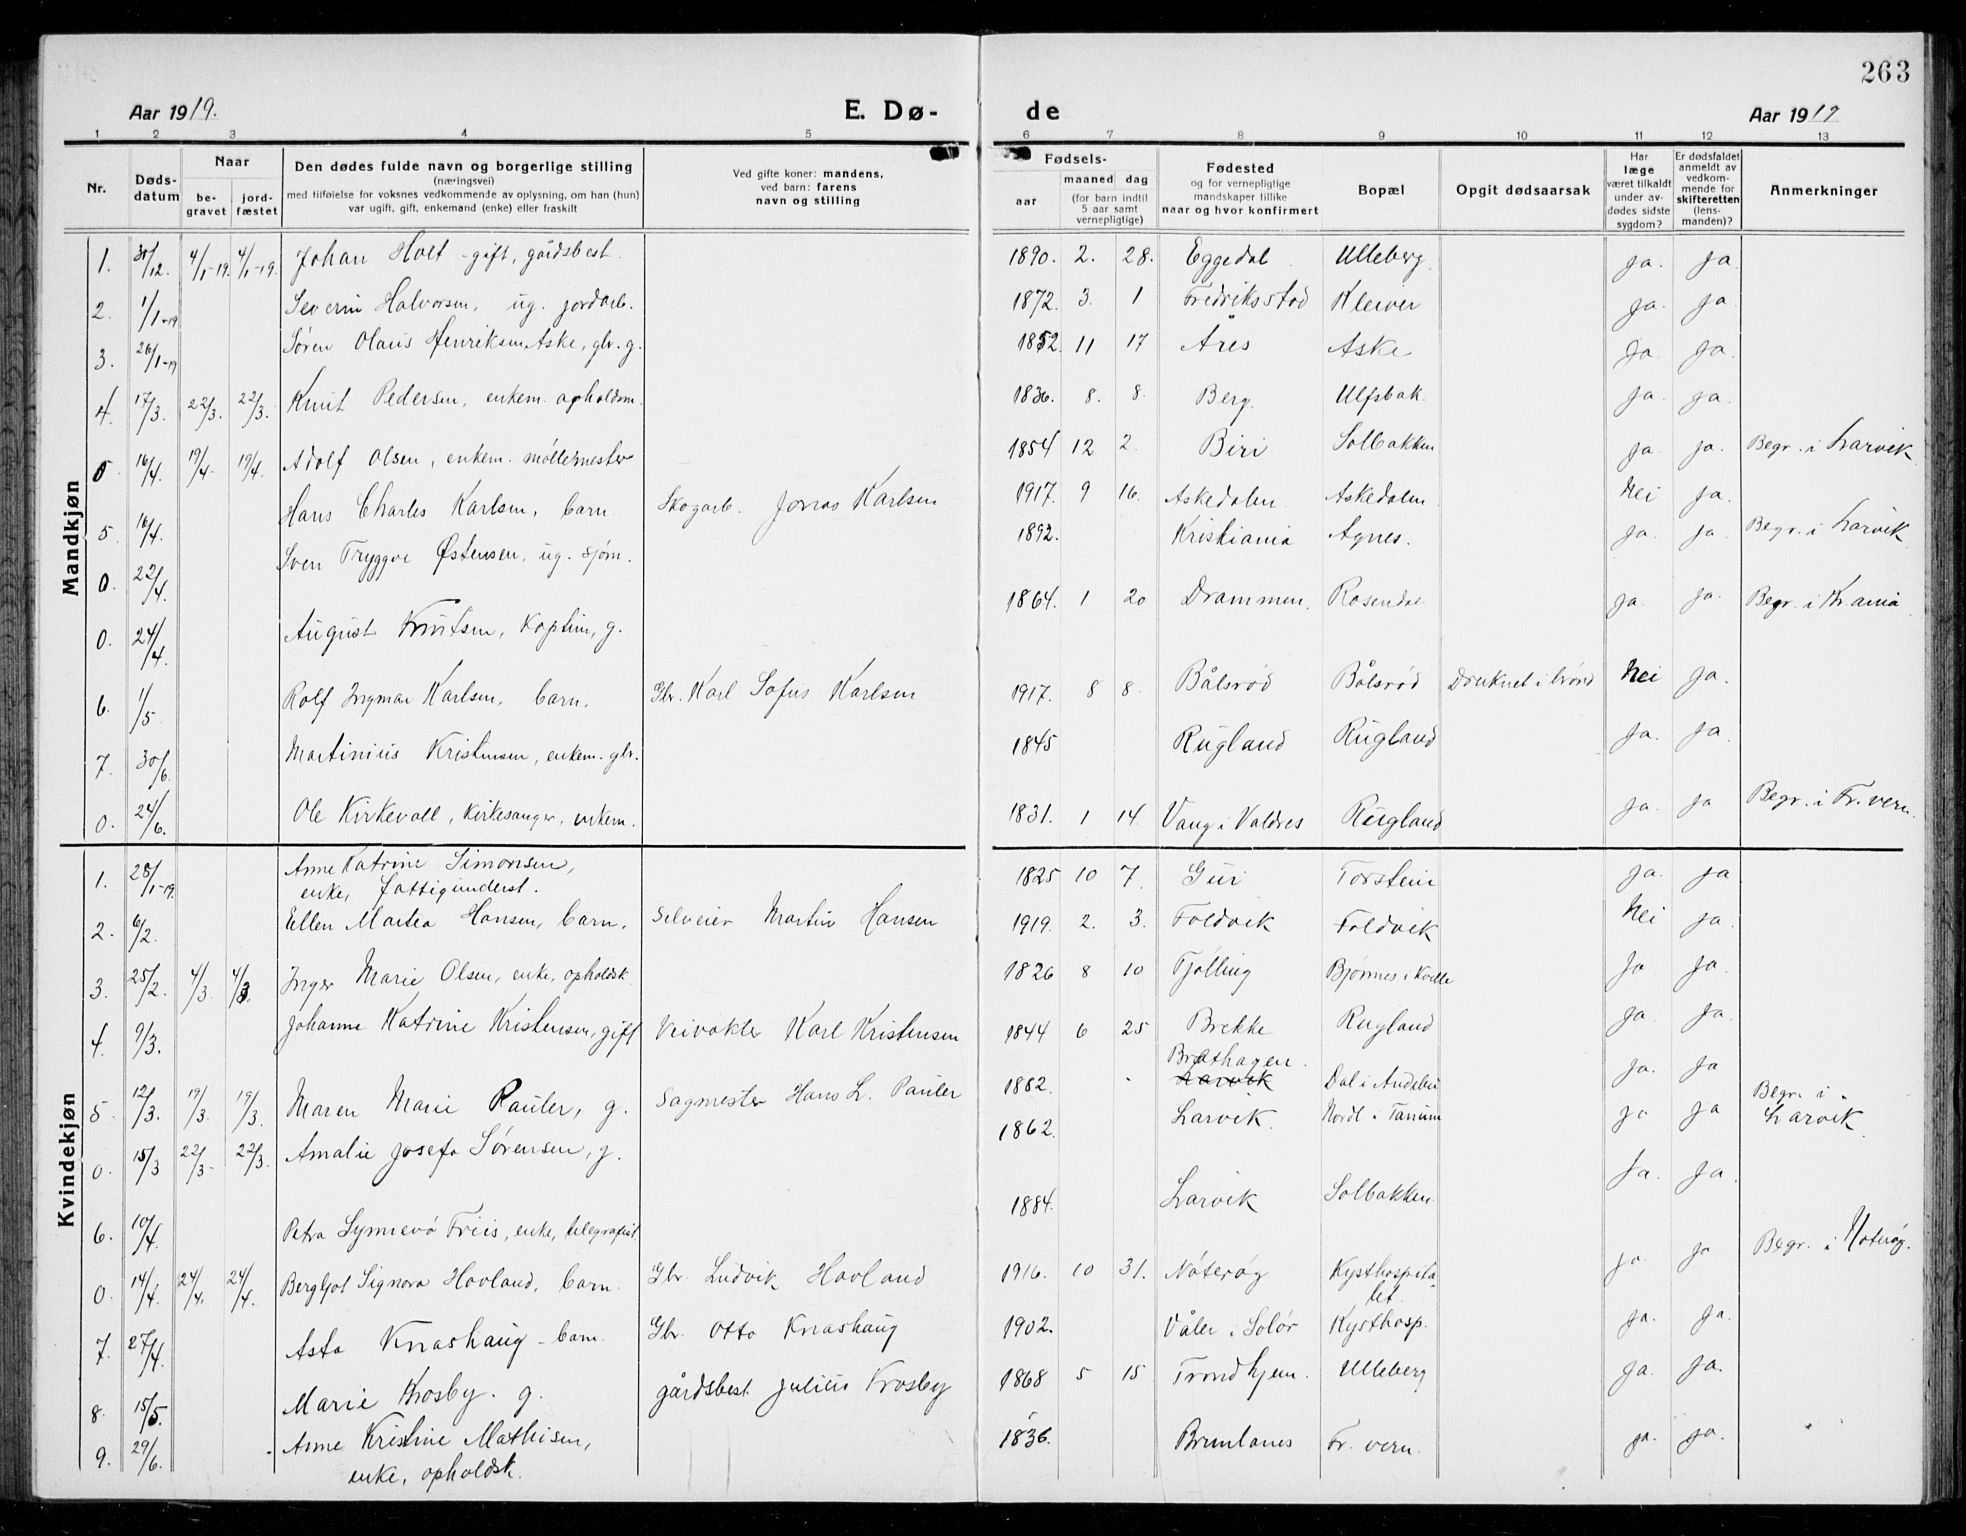 263
Aar 1919.
E. Dø-
de
Aar 1919
1 2 3 4 5 6 7 8 9 10 11 12 13
Nr.
Døds-
datum
Naar
be-
gravet
jord-
fæstet
Den dødes fulde navn og borgerlige stilling
(næringsvei)
med tilføielse for voksnes vedkommende av oplysning, om han (hun)
var ugift, gift, enkemand (enke) eller fraskilt
Ved gifte koner: mandens,
ved barn: farens
navn og stilling
Fødsels-
aar
maaned dag
(for barn indtil
5 aar samt
vernepligtige)
Fødested
og for vernepligtige
mandskaper tillike
naar og hvor konfirmert
Bopæl
Opgit dødsaarsak
Har
læge
været tilkaldt
under av-
dødes sidste
sygdom?
Er dødsfaldet
anmeldt av
vedkom-
mende for
skifteretten
(lens-
manden)?
Anmerkninger
Mandkjøn
1. 31/12. 4/1-19. 4/1-19. Johan Holt - gift, gårdsbest. 1890. 2. 28. Eggedal Ulleberg ja. ja.
2. 1/1-19 Severin Halvorsen, ug. jordarb. 1872. 3. 1 Fredriksstad Kleiver ja. ja.
3. 26/1-19 Søren Olaus Henriksen Aske, gbr. g. 1852. 11 17 Åres Aske ja. ja.
4. 17/3. 22/3. 22/3. Knut Pedersen, enkem. opholdsm. 1836. 8. 8. Berg. Ulfsbak. ja. ja.
0. 16/4. 19/4. 19/4. Adolf Olsen, enkem. møllemester 1854 12 2. Biri Solbakken ja. ja. Begr. i Larvik.
5. 16/4. Hans Charles Karlsen, barn Skogarb. Jonas Karlsen 1917. 9 16. Askedalen Askedalen Nei ja.
0. 22/4. Sven Tryggve Østensen, ug. sjøm. 1892. Kristiania Agnes. ja. ja. Begr. i Larvik.
0. 24/4. August Knutsen, Kaptein, g. 1864. 1 20 Drammen. Rosendal ja. ja. Begr. i Kr.ania
6. 1/5. Rolf Ingmar Karlsen, barn. Gbr. Karl Sofus Karlsen 1917. 8 8. Bålsrød Bålsrød Druknet i brønd Nei ja.
7. 30/6. Martinius Kristensen, enkem. gbr. 1845 Rugland Rugland ja. ja.
0. 24/6. Ole Kirkevoll, Kirkesanger, enkem. 1831. 1 14. Vang i Valdres Rugland ja. ja Begr. i Fr. vern.
Kvindekjøn
1. 28/1-19. Anne Katrine Simonsen,
enke, fattigunderst. 1825 10 7. Gui Torstein ja. ja
2. 6/2. Ellen Martea Hansen, barn. Selveier Martin Hansen 1919. 2. 3. Foldvik Foldvik Nei ja.
3. 25/2. 4/3. 4/3. Inger Marie Olsen, enke, opholdsk. 1826 8 10 Tjølling Bjønnes i Kville ja ja.
4. 9/3. Johanne Katrine Kristensen, gift Veivokter Karl Kristensen 1844 6 25 Brekke Rugland ja. ja.
5. 12/3. 19/3. 19/3. Maren Marie Pauler, g. Sagmester Hans L. Pauler 1882. Brathagen. Larvik Dal i Andebu ja. ja
0. 15/3 22/3- 22/3. Amalie Josefa Sørensen, g. 1862. Larvik. Nordl. Tanum ja ja Begr. i
Larvik.
6. 10/4. Petra Synnevø Friis, enke, telegrafist. 1884. Larvik Solbakken. ja. ja.
0. 14/4. 24/4. 24/4. Bergljot Signora Hovland, barn. Gbr. Ludvik Hovland 1916. 10 31. Nøterøy Kysthospita-
let. ja ja Begr. i Nøterøy.
7. 27/4. Asta Knashaug - barn. Gbr. Otto Knashaug 1902. Våler i Solør Kysthosp. ja. ja.
8. 15/5. Marie Krosby. g. gårdsbest. Julius Krosby 1868 5 15. Trondhjem. Ulleberg ja. ja.
9. 29/6. Anne Kristine Mathisen,
enke, opholdsk. 1836. Brunlanes Fr. vern. ja. ja.